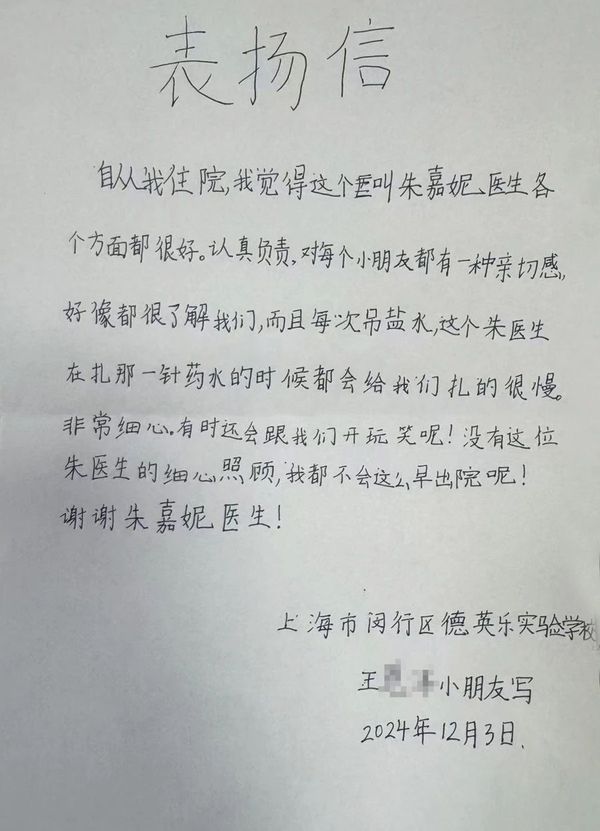 表扬信
自从我住院,我觉得这个叫朱嘉妮医生各
个方面都很好。认真负责,对每个小朋友都有一种亲切感,
好像都很了解我们,而且每次吊盐水,这个朱医生
在扎那一针药水的时候都会给我们扎的很慢。
非常细心。有时还会跟我们开玩笑呢!没有这位
朱医生的细心照顾,我都不会这么早出院呢!
谢谢朱嘉妮医生!
上海市闵行区德英乐实验学校
王小朋友写
2024年12月3日.